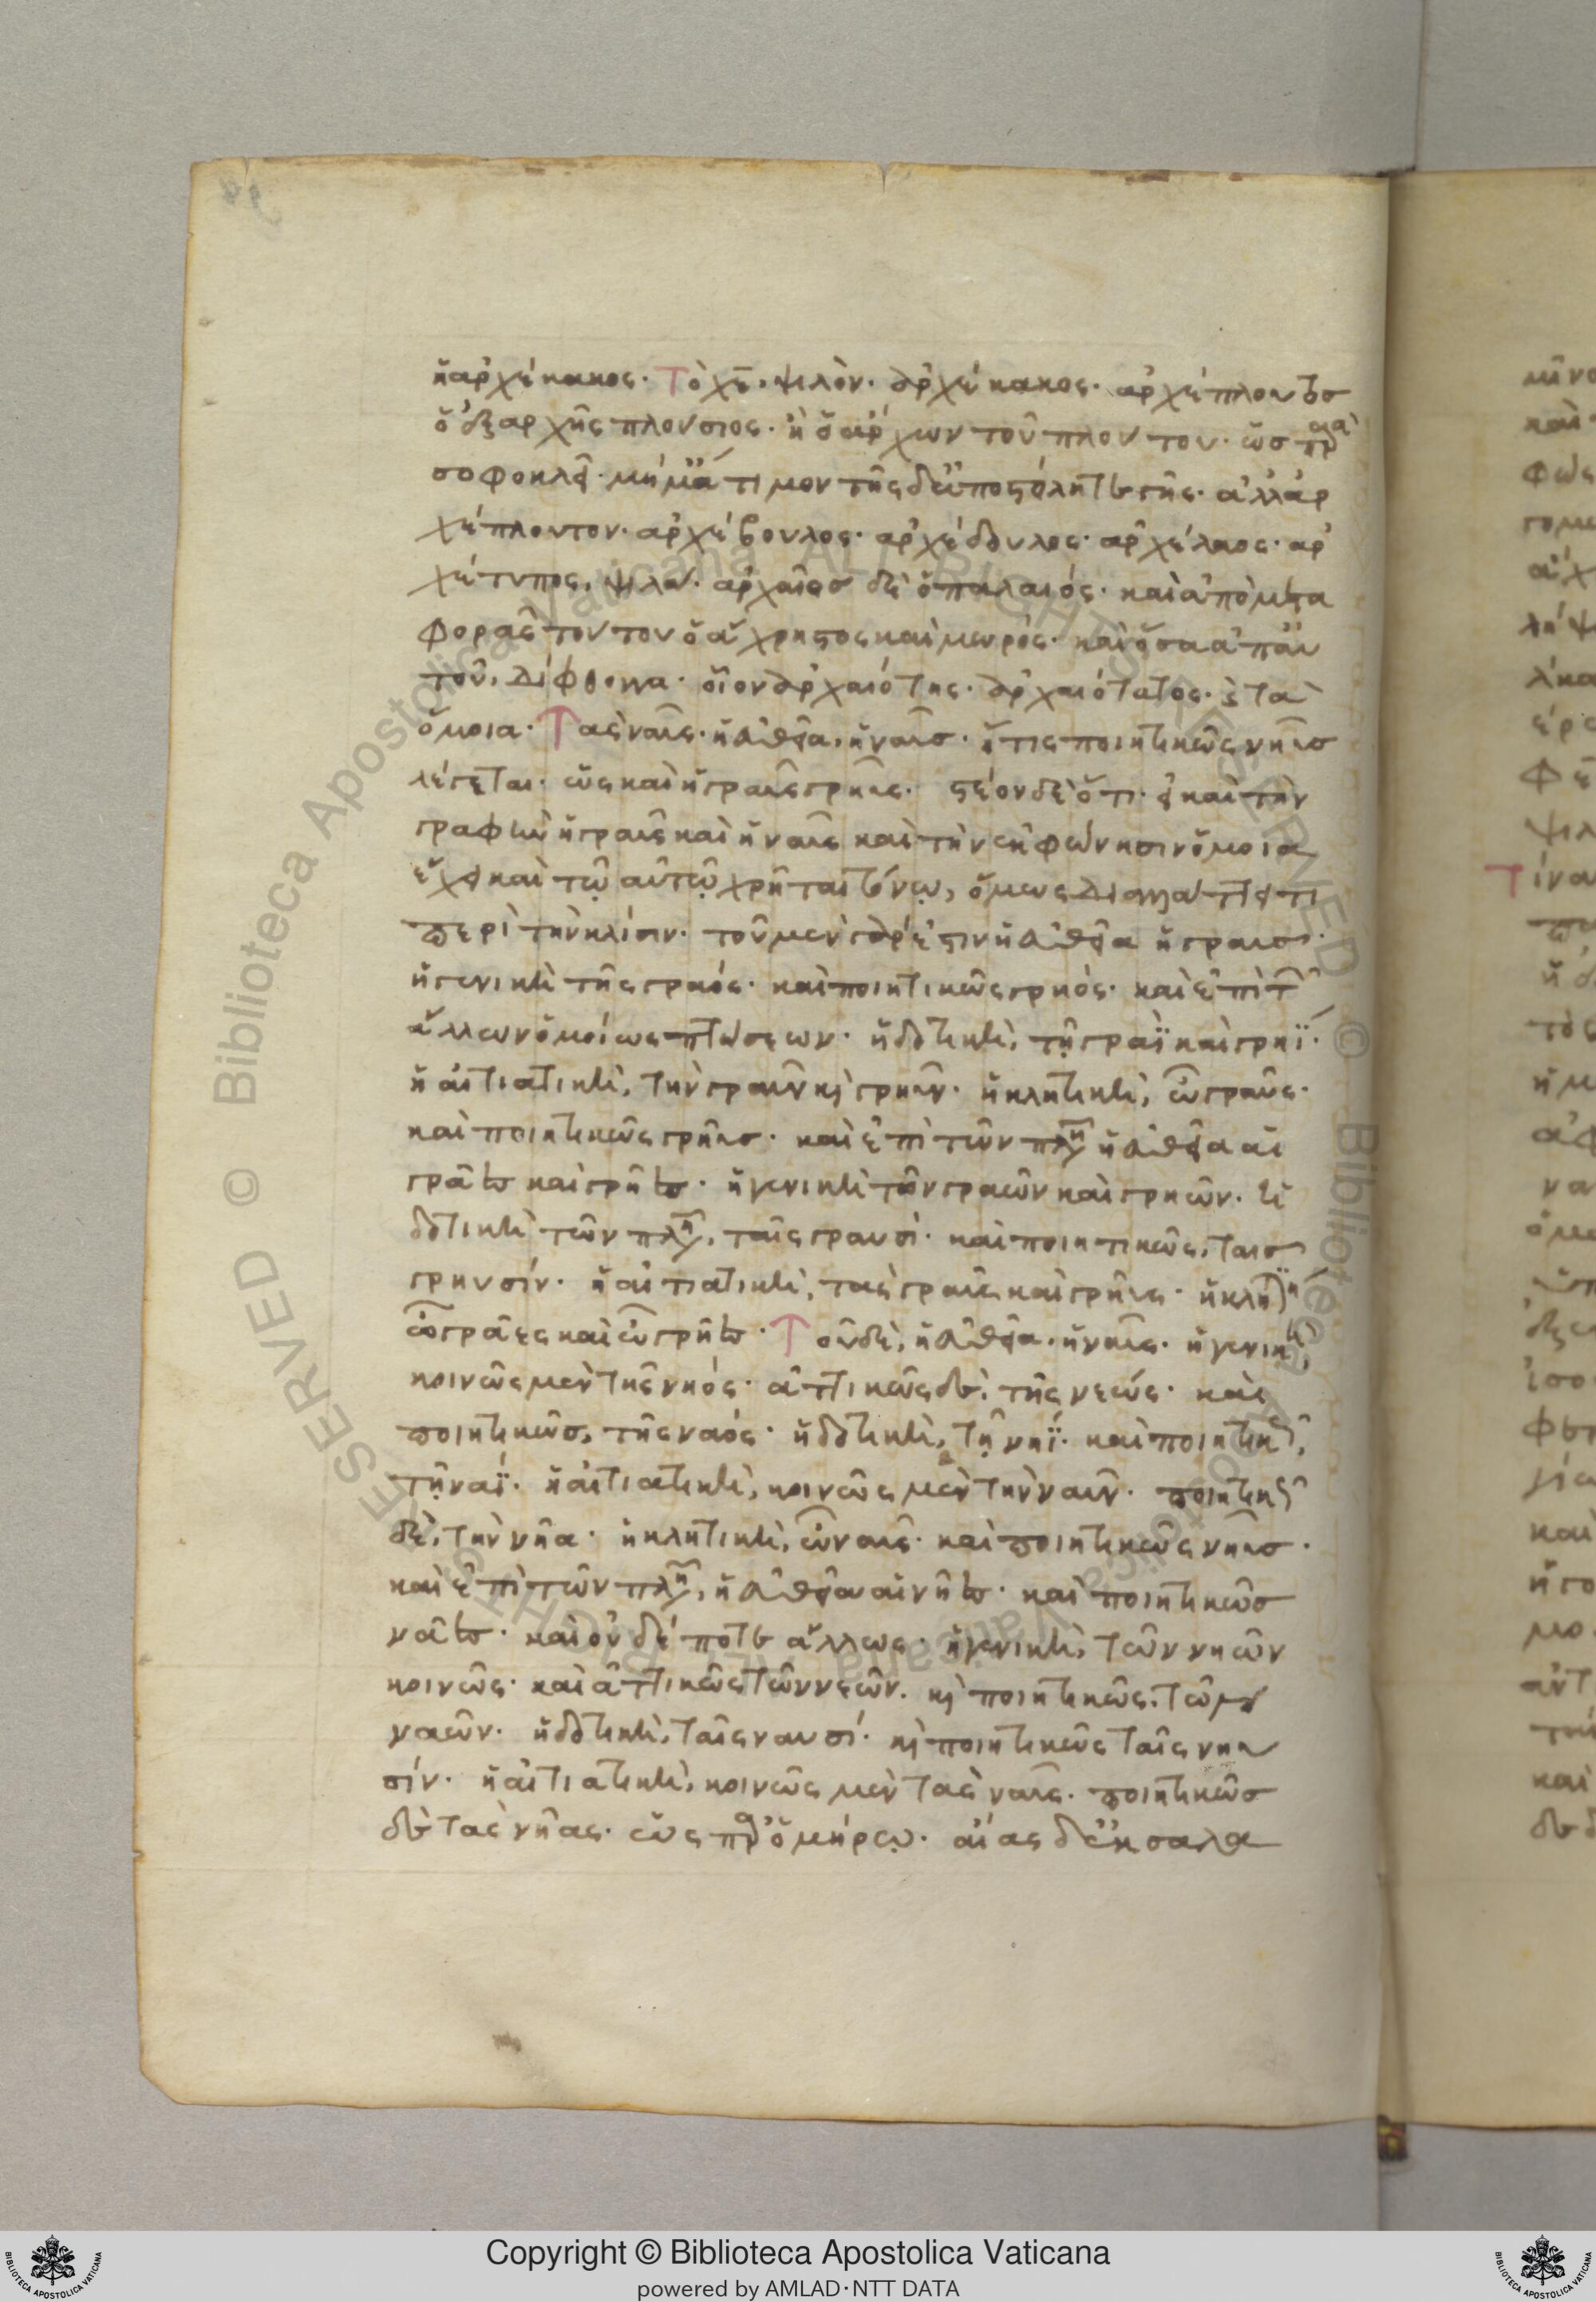 ἢ ἀρχέκακος· Τὸ χε, ψιλὸν· ἀρχέκακος· ἀρχέπλουτος
ὁ ἐξαρχῆς πλούσιος· ἢ ὁ ἄρχων τοῦ πλούτου· ὥσπερ παρὰ
σοφοκλεῖ· ἀλλ' ἀρ
χέπλουτον· ἀρχέβουλος· ἀρχέδουλος· ἀρχέλαος· ἀρ
χέτυπος, ψιλά· ἀρχαῖος δὲ ὁ παλαιός· καὶ ἀπὸ μετα
φορᾶς τούτου ὁ ἄχρηστος καὶ μωρός· καὶ ὅσα ἀπ' αὐ
τοῦ, δίφθογγα· οἷον ἀρχαιότης· ἀρχαιότατος· καὶ τὰ
ὅμοια· Τὰς ναῦς· ἡ εὐθεῖα, ἡ ναῦς· ἥτις ποιητικῶς νηῦς
λέγεται· ὡς καὶ ἡ γραῦς γρηῦς· ἰστέον δὲ ὅτι· εἰ καὶ τὴν
γραφὴν ἡ γραῦς καὶ ἡ ναῦς καὶ τὴν ἐκφώνησιν ὅμοια
ἔχει καὶ τῷ αὐτῷ χρῆται τόνῳ, ὅμως διαλλάττει τι
περὶ τὴν κλίσιν· τοῦ μὲν γάρ ἐστιν ἡ εὐθεῖα ἡ γραῦς·
ἡ γενικὴ τῆς γραός· καὶ ποιητικῶς γρηός· καὶ ἐπὶ τῶν
ἄλλων ὁμοίως πτώσεων· ἡ δοτικὴ, τῇ γραῒ καὶ γρηΐ·
ἡ αἰτιατικὴ, τὴν γραῦν καὶ γρηῦν· ἡ κλητικὴ, ὦ γραῦς·
καὶ ποιητικῶς γρηῦς· καὶ ἐπὶ τῶν πλη ἡ εὐθεῖα αἱ
γρᾶες καὶ γρῆες· ἡ γενικὴ τῶν γραῶν καὶ γρηῶν· ἡ
δοτικὴ τῶν πλη, ταῖς γραυσί· καὶ ποιητικῶς, ταῖς
γρηυσίν· ἡ αἰτιατικὴ, τὰς γραῦς καὶ γρῆυς· ἡ κλητικὴ
ὦ γρᾶες καὶ ὦ γρῆες· Τοῦ δὲ, ἡ εὐθεῖα· ἡ ναῦς· ἡ γενικὴ,
κοινῶς μὲν τῆς νηός· ἀττικῶς δὲ, τῆς νεώς· καὶ
ποιητικῶς, τῆς ναός· ἡ δοτικὴ, τῇ νηΐ· καὶ ποιητικῶς,
τῇ ναΐ· ἡ αἰτιατικὴ, κοινῶς μὲν τὴν ναῦν· ποιητικῶς
δὲ, τὴν νῆα· ἡ κλητικὴ, ὦ ναῦς· καὶ ποιητικῶς νηῦς·
καὶ ἐπὶ τῶν πλη, ἡ εὐθεῖα αἱ νῆες· καὶ ποιητικῶς
νᾶες· καὶ οὐδέποτε ἄλλως· ἡ γενικὴ, τῶν νηῶν
κοινῶς· καὶ ἀττικῶς τῶν νεῶν· καὶ ποιητικῶς, τῶν
ναῶν· ἡ δοτικὴ, ταῖς ναυσί· καὶ ποιητικῶς ταῖς νηυ
σίν· ἡ αἰτιατικὴ, κοινῶς μὲν τὰς ναῦς· ποιητικῶς
δὲ τὰς νῆας· ὡς παρ' ὁμήρῳ· αἴας δ' ἐκ σαλα
Copyright © Biblioteca Apostolica Vaticana
powered by AMLAD·NTT DATA